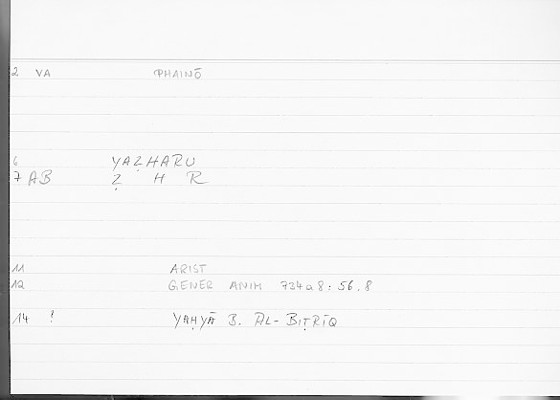 2 VA PHAINŌ
6 YAẒHARU
7 AB Ẓ H R
11 ARIST
12 GENER ANIM 734a8:56.8
14 ? YAḤYĀ B. AL-BIṬRĪQ